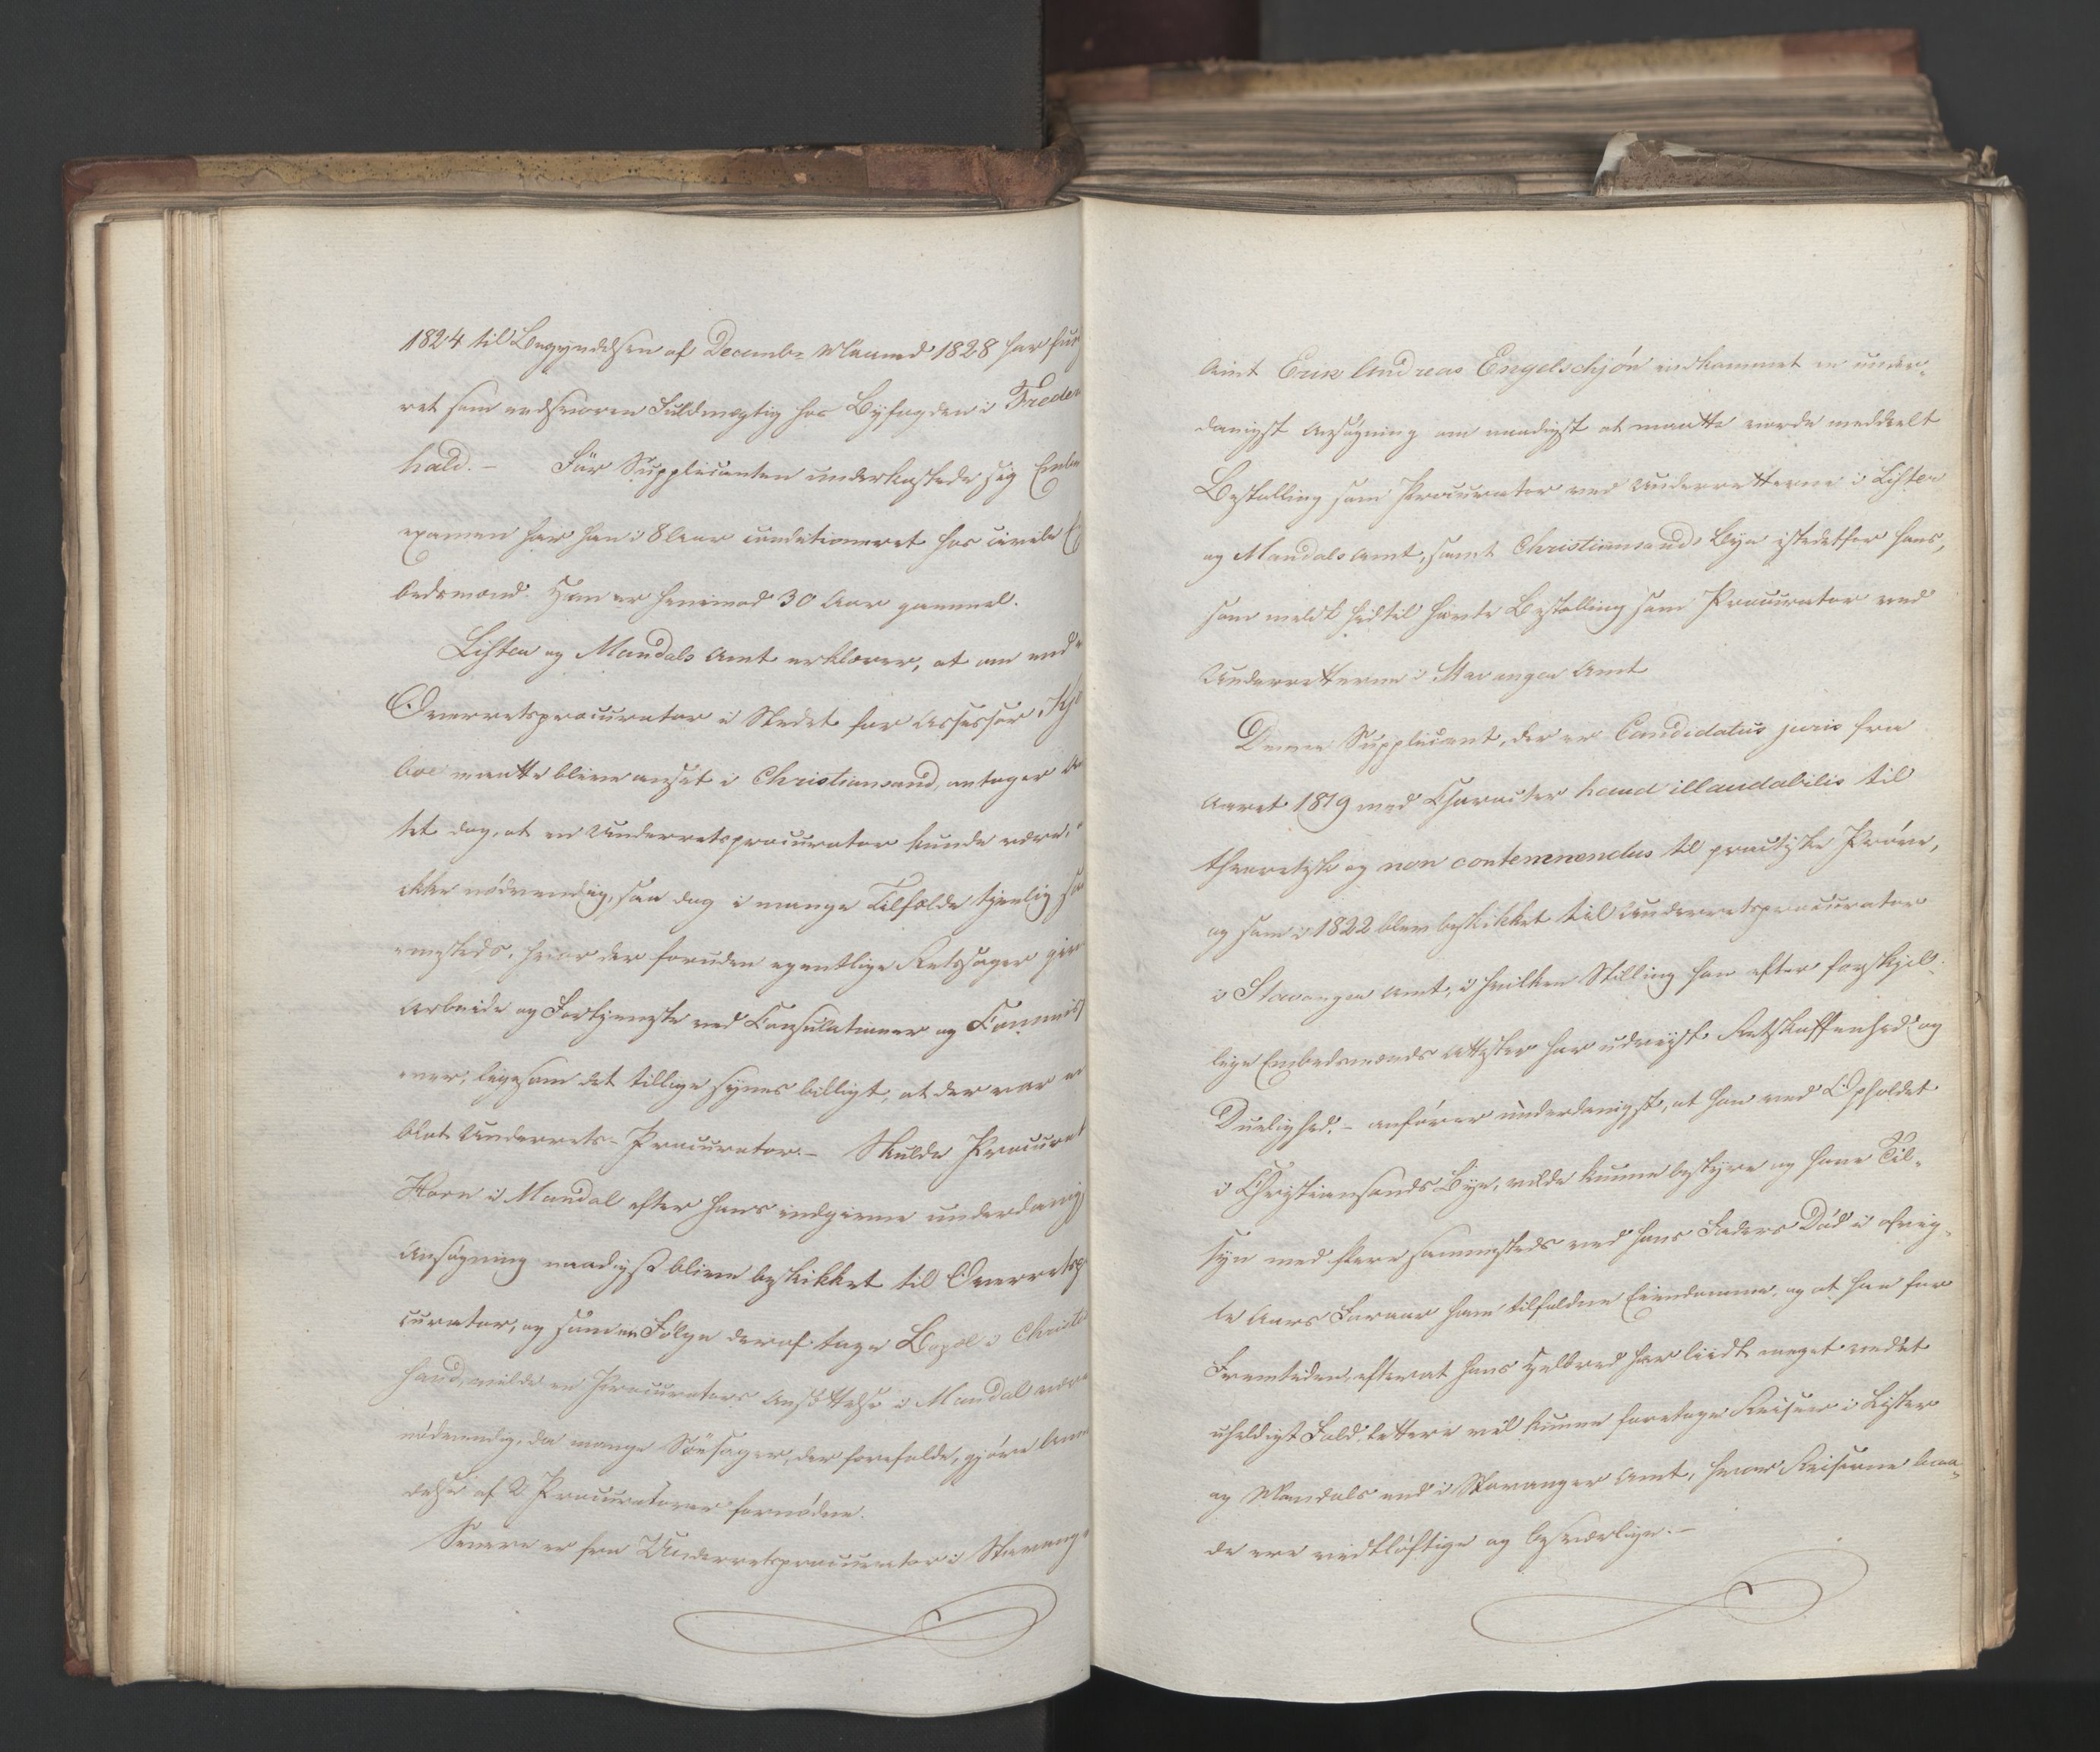 1824 til Begyndelsen af Decembr Maaned 1828 har fun
ret som eedsvoren Fuldmægtig hos Byfogden i Freder
hald. – Før Supplicanten underkastede sig Embe
examen har han i 8 Aar conditioneret hos civile E
bedsmænd. Han er henimod 30 Aar gammel.
Lister og Mandals Amt erklærer, at om end
Overretsprocurator i Stedet for Assessor
maatte blive ansat i Christiansand, antager A
tet dog, at en Underretsprocurator kunde være,
ikke nødvendig, saa dog i mange Tilfælde tjenlig sa
mesteds, hvor der foruden egentlige Retssager giv
Arbeide og Fortjeneste ved Consulationer og Commis
oner, ligesom det tillige synes billigt, at der var en
blot Underrets-Procurator. – Skulde Procurat
Horn i Mandal efter hans indgivne underdanig
Ansøgning naadigst blive beskikket til Overretsp
curator, og som en Følge deraf tage Bopæl i Christi
sand, vilde en Procurators Ansættelse i Mandal være
nødvendig, da mange Søesager, der forefalde, gjøre Anven
delse af 2 Procuratorer fornøden.
Senere er fra Underretsprocurator i Stavange
Amt Erik Andreas Engelschjøn indkommet en under-
danigst Ansøgning om naadigst at maatte vorde meddeelt
Bestalling som Procurator ved Underretterne i Lister
og Mandals Amt, samt Christiansands Bye istedetfor hans,
som meldt hidtil havte Bestalling som Procurator ved
Underretterne i Stavanger Amt
Denne Supplicant, der er Candidatus juris fra
Aaret 1819 med Character haud illaudabilis til
theoretisk og non contemnendus til practiske Prøve,
og som i 1822 blev beskikket til Underretsprocurator
i Stavanger Amt, i hvilken Stilling han efter forskjel-
lige Embedsmænds Attester har udviist Retskaffenhed og
Duelighed. – anfører underdanigst, at han ved Opholdet
i Christiansands Bye, vilde kunne bestyre og have Til-
syn med flere sammesteds ved hans Faders Død i afvig-
te Aars Foraar ham tilfaldne Eiendomme, og at han for
Fremtiden, efterat hans Helbred har liidt meget ved et
uheldigt Fald lettere vil kunne foretage Reiser i Lister
og Mandals end i Stavanger Amt, hvor Reiserne baa-
de ere vidtløftige og besværlige. –